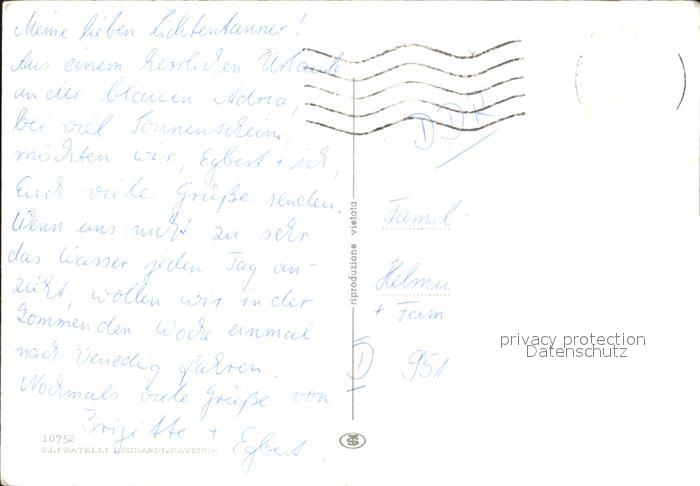 Meine lieben Lichtentanner!
Aus einem herrlichen Urlaub
an der blauen Adria,
bei viel Sonnenschein,
möchten wir, Egbert + ich,
Euch viele Grüße senden.
Wenn uns nicht zu sehr
das Wasser jeden Tag an-
zieht, wollen wir in der
kommenden Woche einmal
nach Venedig fahren.
Nochmals viele Grüße von
Brigitte +
Egbert
10752
Ed. FRATELLI LEONARDI-RAVENNA
riproduzione vietata
DDR
Famil
Helmu
+ Fam
D 951
privacy protection
Datenschutz